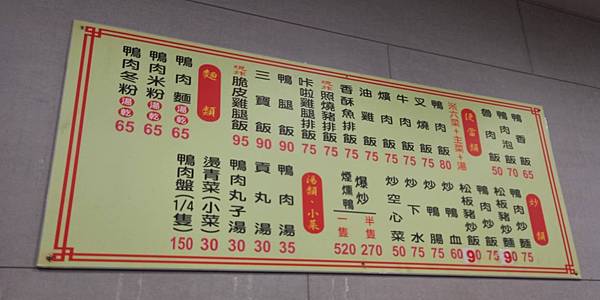 鴨香飯 65
鴨肉泡飯 70
魯肉飯 50
便當類
※六菜+主菜+湯
鴨肉飯 80
叉燒飯 75
牛肉飯 75
爌肉飯 75
油雞飯 75
香酥魚排飯 75
現炸照燒豬排飯 75
現炸咔啦雞腿排飯 75
鴨腿飯 90
三寶飯 90
現炸脆皮雞腿飯 95
麵類
鴨肉麵 湯乾 65
鴨肉米粉 湯乾 65
鴨肉冬粉 湯乾 65
炒類
鴨肉炒麵 75
松板豬炒麵 90
鴨肉炒飯 75
松板豬炒飯 90
炒鴨血 60
炒鴨腸 75
炒下水 75
炒空心菜 50
爆炒
煙燻鴨
半隻 270
一隻 520
湯類、小菜
鴨肉湯 35
貢丸湯 30
鴨肉丸子湯 30
燙青菜(小菜) 30
鴨肉盤(1/4隻) 150